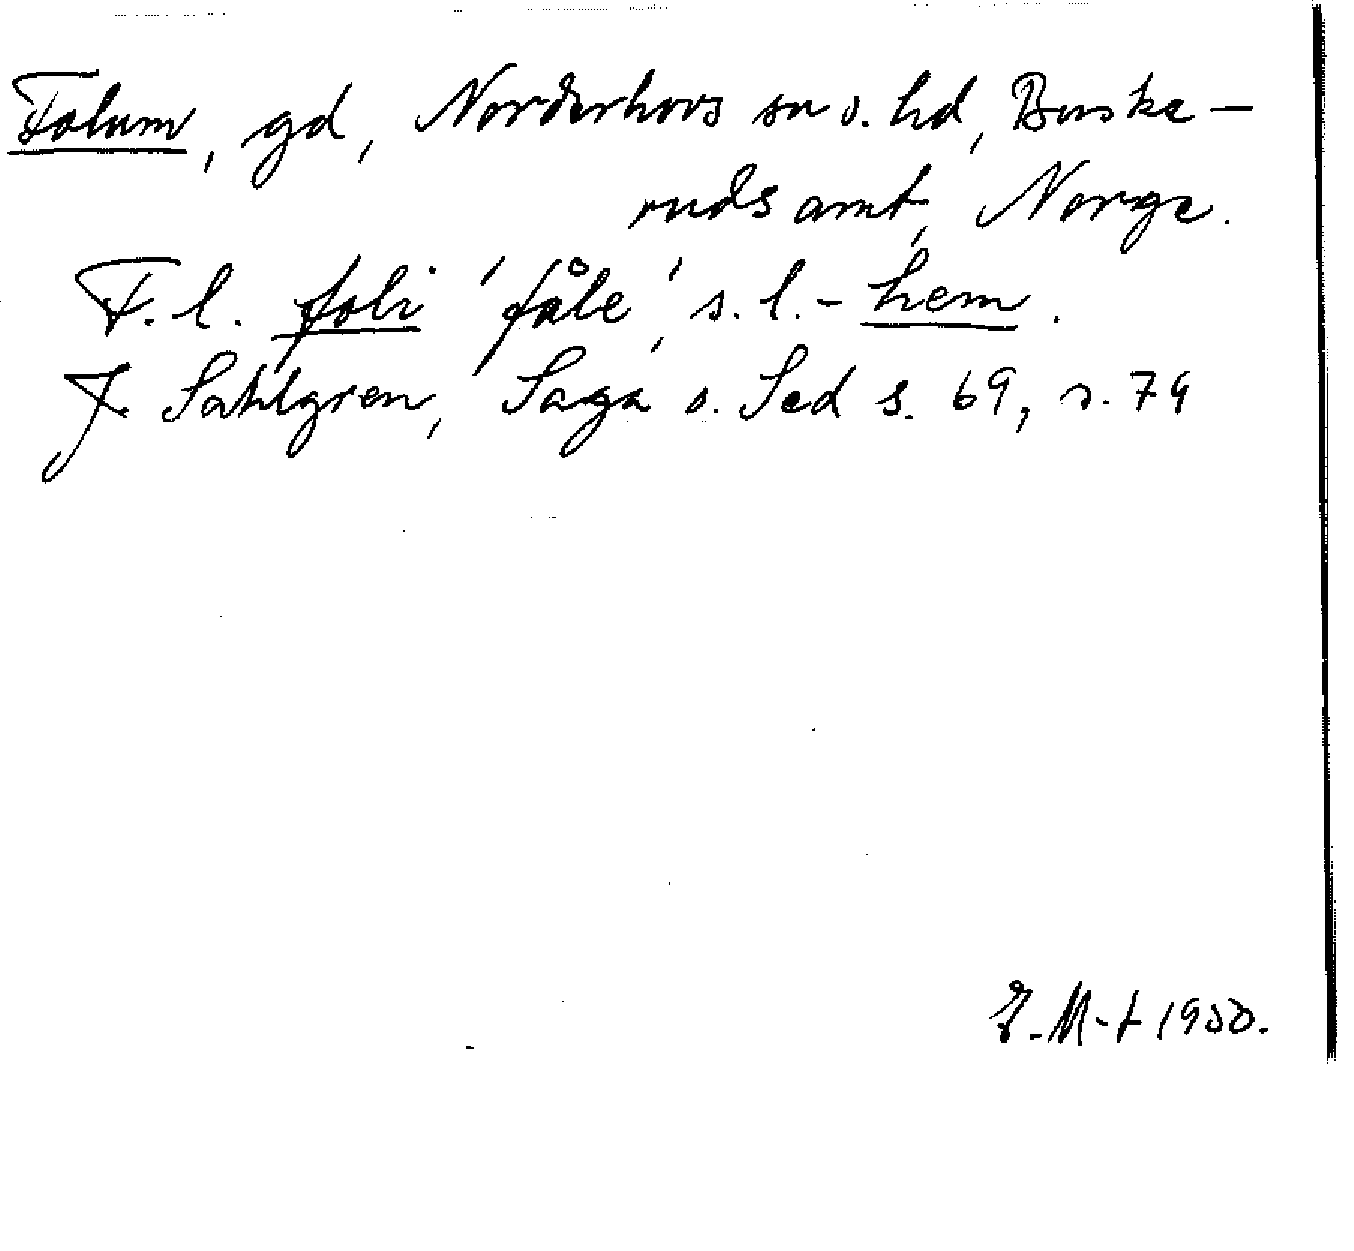 Folum, gd, Norderhovs sn o. hd, Buske-
ruds amt, Norge.
F. l. foli 'fåle', s. l. - hem.
J. Sahlgren, Saga o. Sed s. 69, s. 79
M-t 1950.